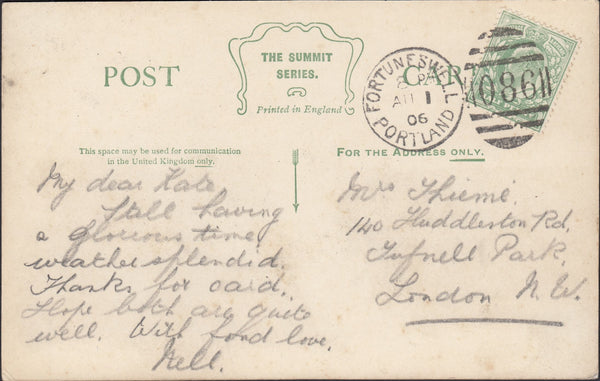 POST CARD
THE SUMMIT
SERIES.
Printed in England
FORTUNESWELL
AU 1
06
PORTLAND
086
This space may be used for communication
in the United Kingdom only.
FOR THE ADDRESS ONLY.
My dear Kate
Still having
a glorious time,
weather splendid.
Thanks for card.
Hope both are quite
well. With fond love,
Nell.
Mrs Thieme.
140 Huddleston Rd,
Tufnell Park.
London N.W.